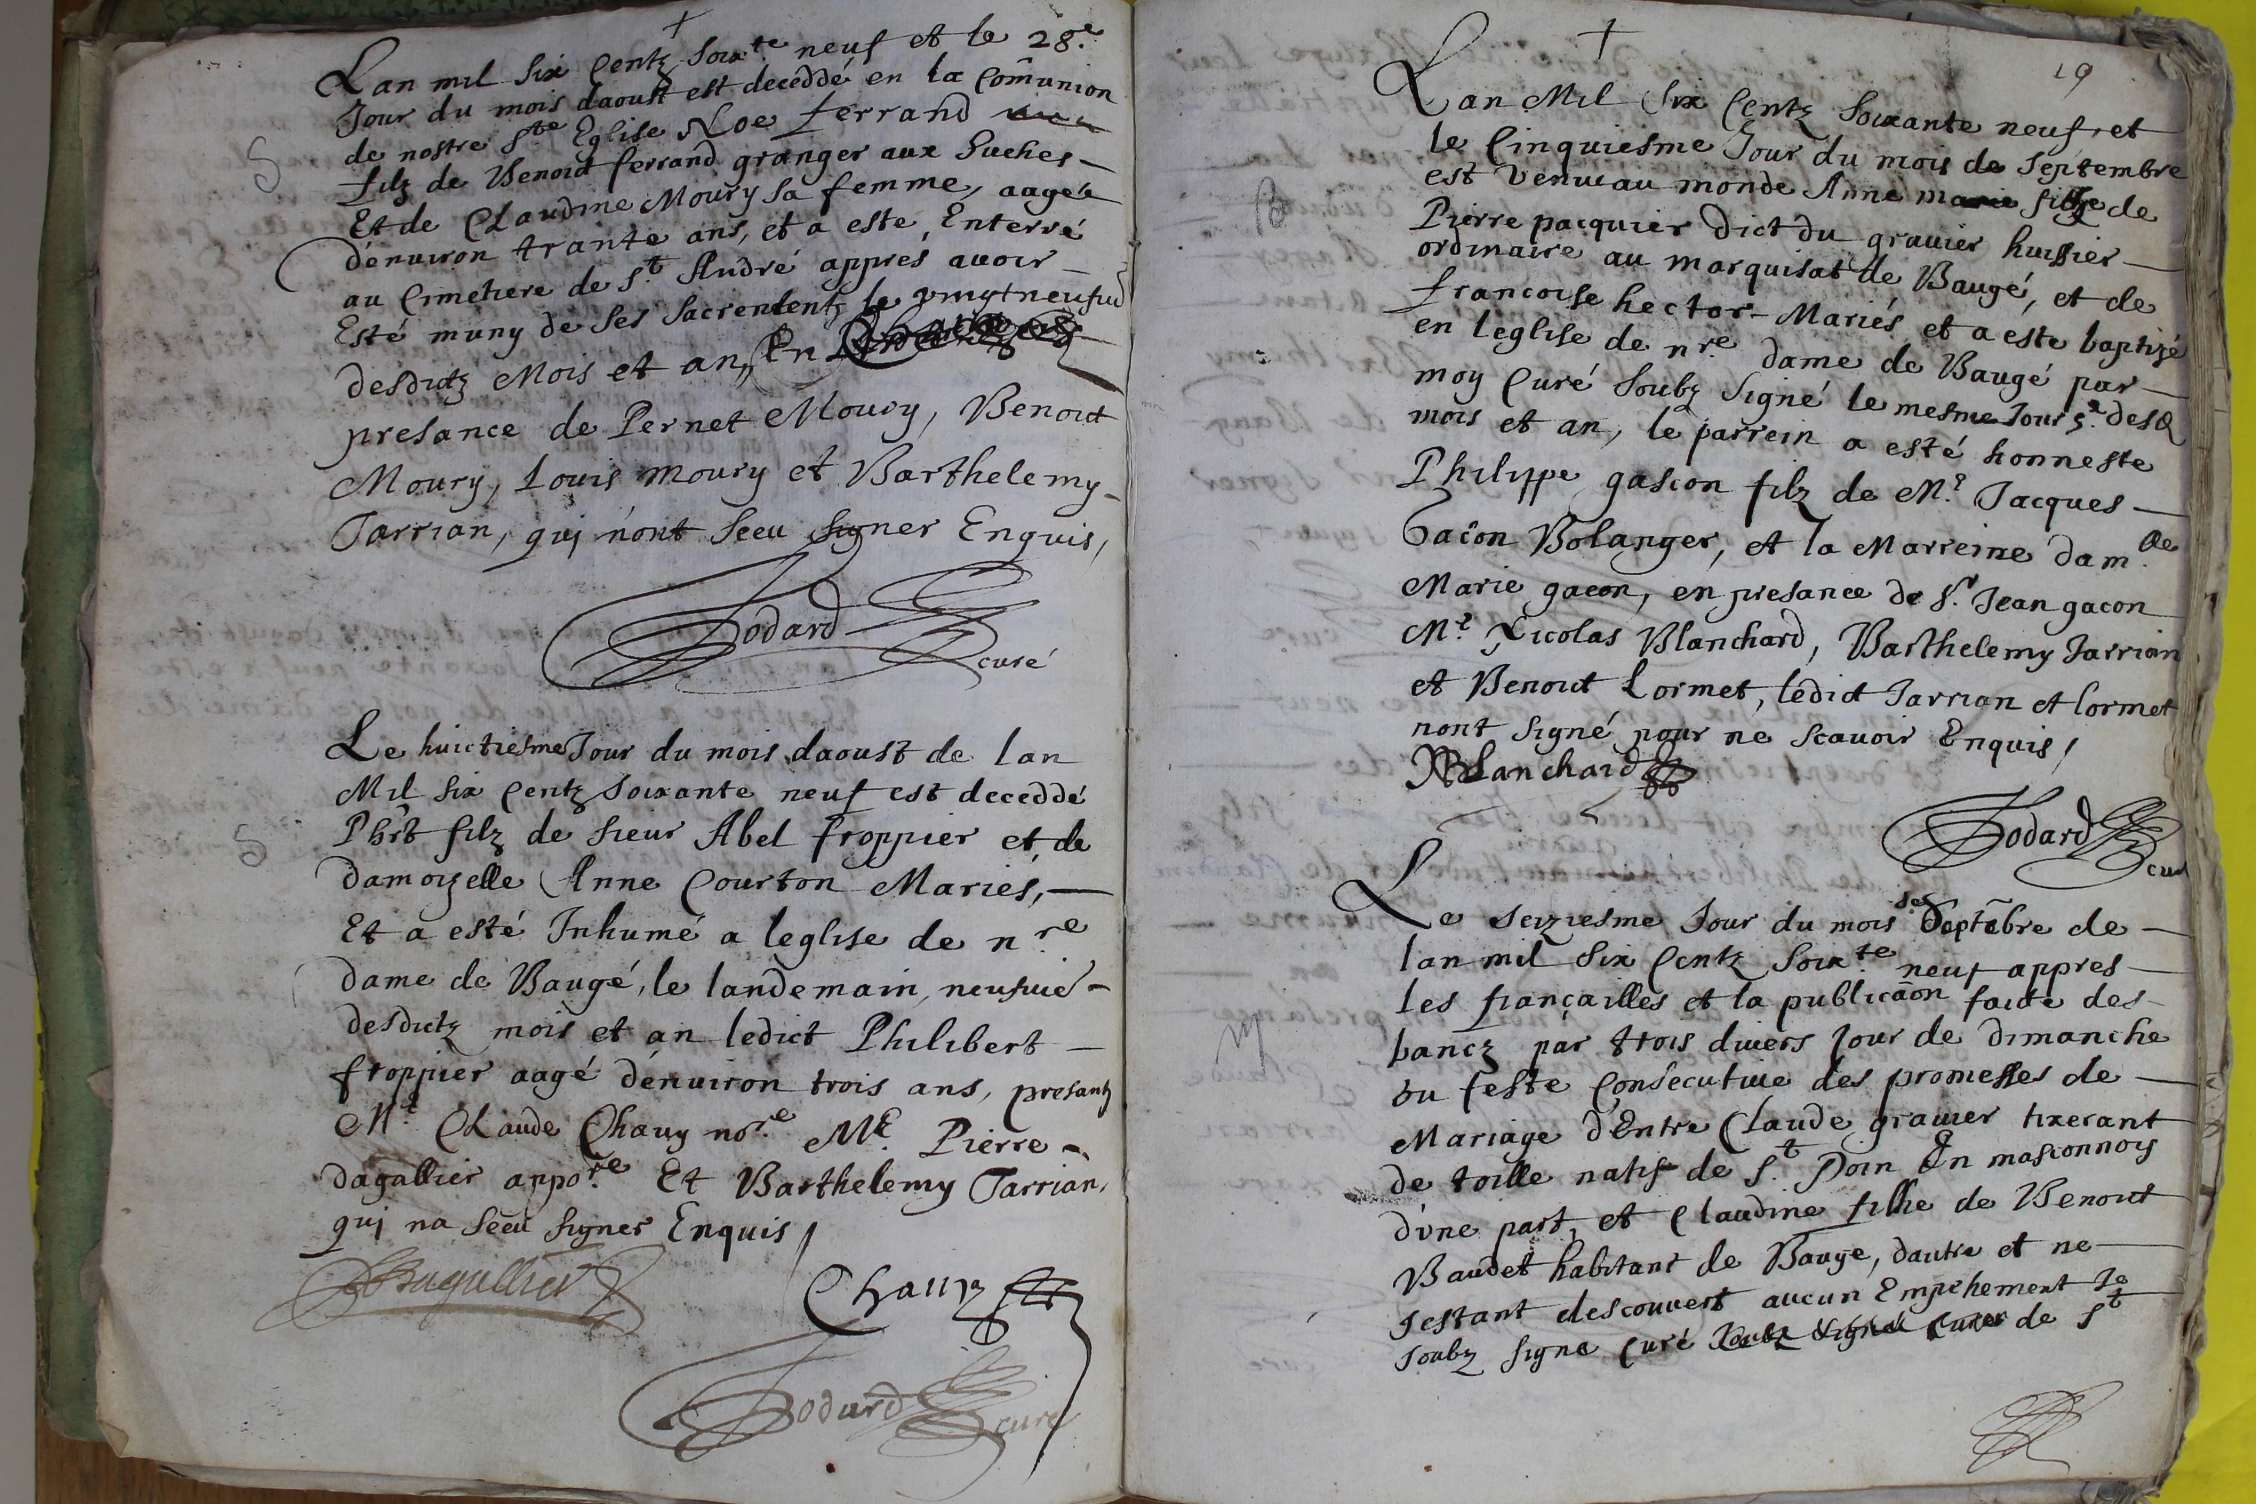 +
Lan mil six Centz soixte neuf et le 28e
Jour du mois daoust est deceddé en la Comunion
de nostre Ste Eglise Noe ferrand
S
filz de Benoid ferrand granger aux huches
Et de Claudine Moury sa femme, aagée
dénuiron trante ans, et a este Enterré
au Cimetiere de St André appres auoir
Esté muny de ses sacrementz le vingtneufuie
desdictz Mois et an, En
presance de Pernet Moury, Benoid
Moury, Louis moury et Barthelemy
Jarrian, qui nont sceu signer Enquis,
Godard
curé
Le huictiesme Jour du mois daoust de lan
Mil six Centz soixante neuf est deceddé
S
Phrt filz de sieur Abel froppier et de
damoizelle Anne Courton Mariés,
Et a esté Inhumé a leglise de nre
dame de Baugé, le landemain neufuie
desdictz mois et an ledict Philibert
froppier aagé dénuiron trois ans, presantz
Me Claude Chauy nore Me Pierre
dagallier appore Et Barthelemy Jarrian,
qui na sceu signer Enquis
Dagallier
Chauy
Godard
curé
+
19
Lan Mil six Centz soixante neuf, et
le Cinquiesme Jour du mois de septembre
est venue au monde Anne marie fille de
B
Pierre pacquier dict du grauier huissier
ordinaire au marquisat de Baugé, et de
francoise hector Mariés et a este baptizé
en leglise de nre dame de Baugé par
moy Curé soubz signé le mesme Jour 5e desd
mois et an, le parrein a esté honneste
Philippe gascon filz de Me Jacques
Gacon Bolanger, et la Marreine damlle
Marie gacon, en presance de sr Jean gacon
Me Nicolas Blanchard, Barthelemy Jarrian
et Benoid Lormet, ledict Jarrian et Lormet
nont signé pour ne scauoir Enquis,
NBlanchard
Godard
curé
Le seiziesme Jour du mois de septebre de
lan mil six Centz soixte neuf appres
les fiançailles et la publicaon faicte des
M
bancz par trois diuers jour de dimanche
ou feste Consecutiue des promesses de
Mariage d'Entre Claude grauier tixerant
de toille natif de St Poin En masconnois
d'vne part, et Claudine fille de Benoid
Baudet habitant de Bauge, dautre et ne
sestant descouvert aucun Empchement Je
soubz signe Curé soubz signé Curé de St